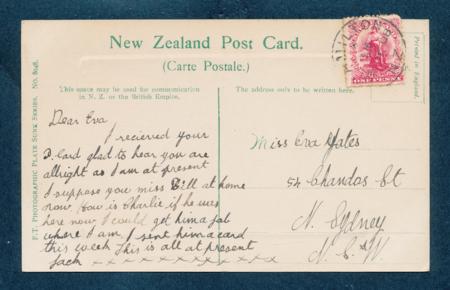 New Zealand Post Card.
(Carte Postale.)
This space may be used for communication
in N. Z. or the British Empire.
The address only to be written here.
Printed in England.
F.T. PHOTOGRAPHIC PLATE SUNK SERIES. No.
ONE PENNY
Dear Eva
I recieved your
P.Card glad to hear you are
allright as I am at present
I suppose you miss Bill at home
now. How is Charlie if he was
here now I could get him a job
where I am. I sent him a card
this week This is all at present
Jack x x x x x x x x x x x x
Miss Eva Yates
54 Chandos St
N. Sydney
N. S. W.